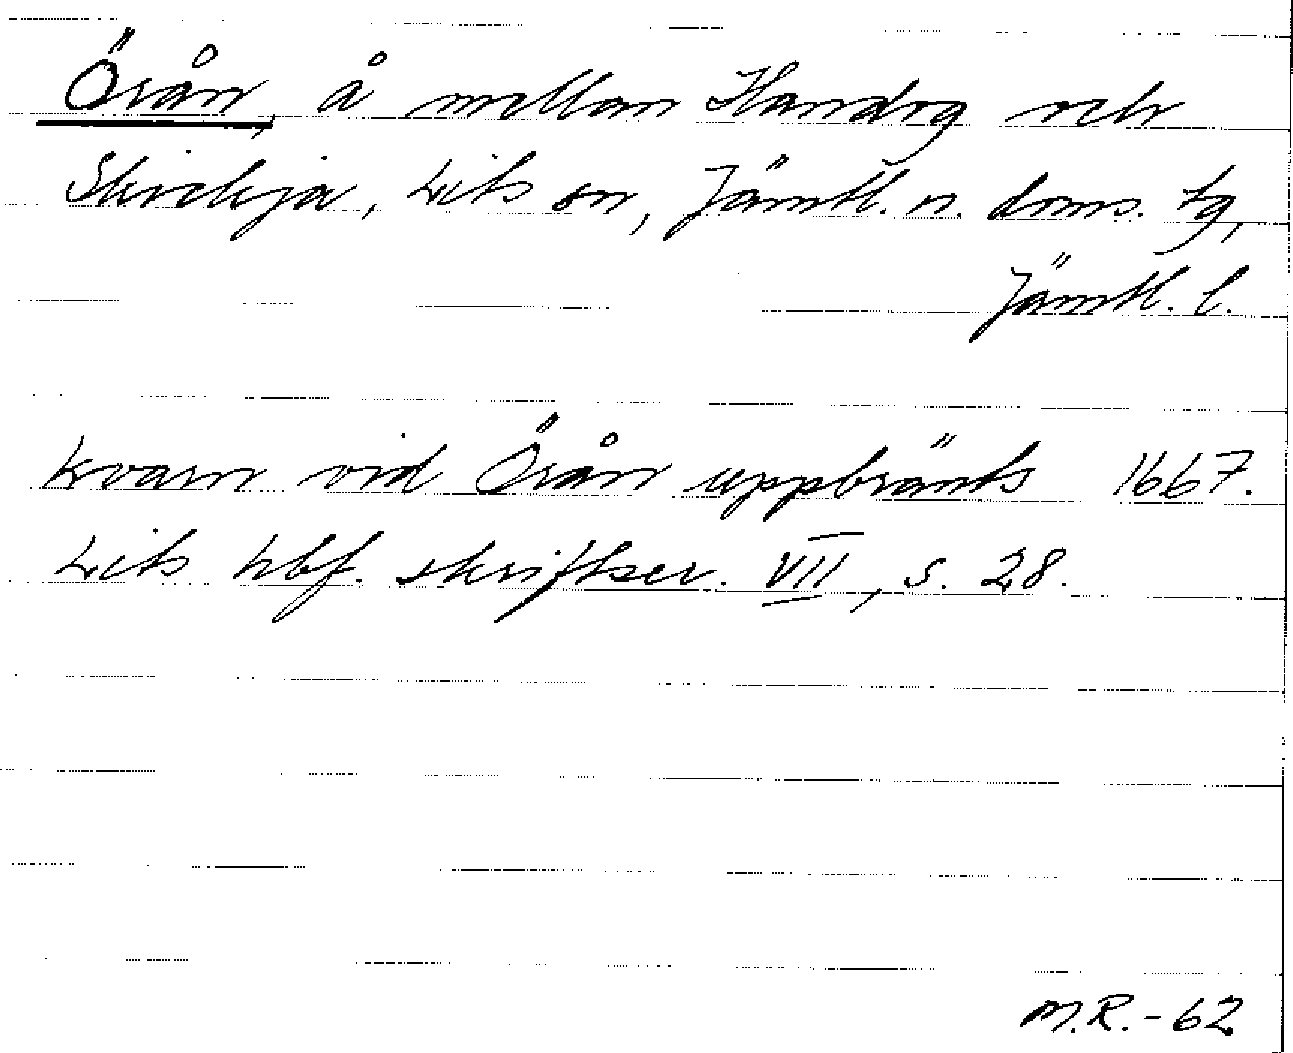 Örån, å mellan Handog och
Skickja, Lits sn, Jämtl. n. doms. tg,
Jämtl. l.
Kvarn vid Örån uppbränts 1667.
Lits hbf. skriftser. VII, s. 28.
M.R.-62